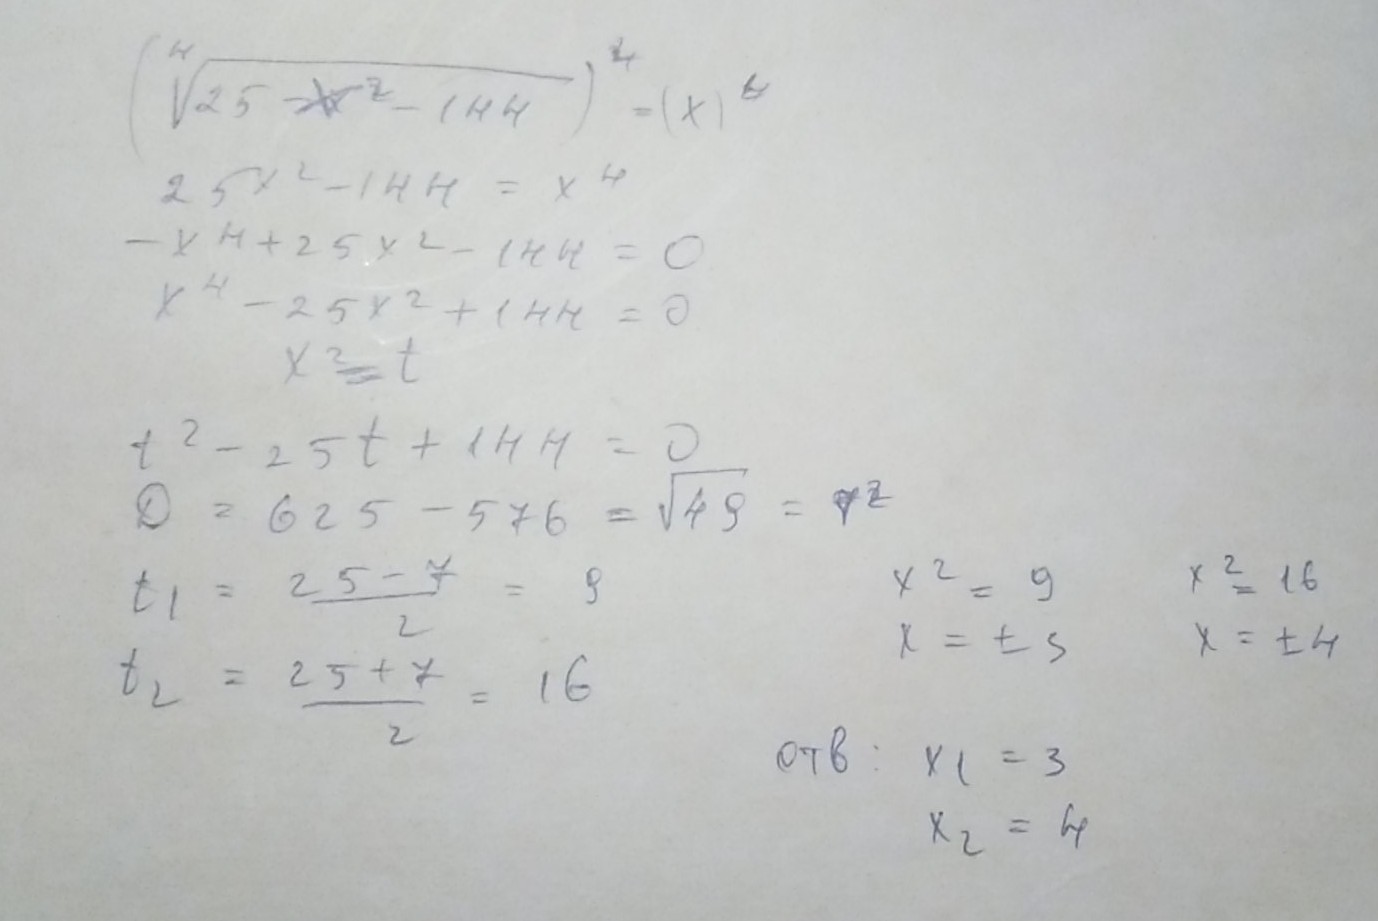 (⁴√(25x² - 144))⁴ = (x)⁴
25x² - 144 = x⁴
-x⁴ + 25x² - 144 = 0
x⁴ - 25x² + 144 = 0
x² = t
t² - 25t + 144 = 0
D = 625 - 576 = √49 = 7²
t₁ = (25 - 7)/2 = 9
t₂ = (25 + 7)/2 = 16
x² = 9
x = ±3
x² = 16
x = ±4
отв: x₁ = 3
x₂ = 4